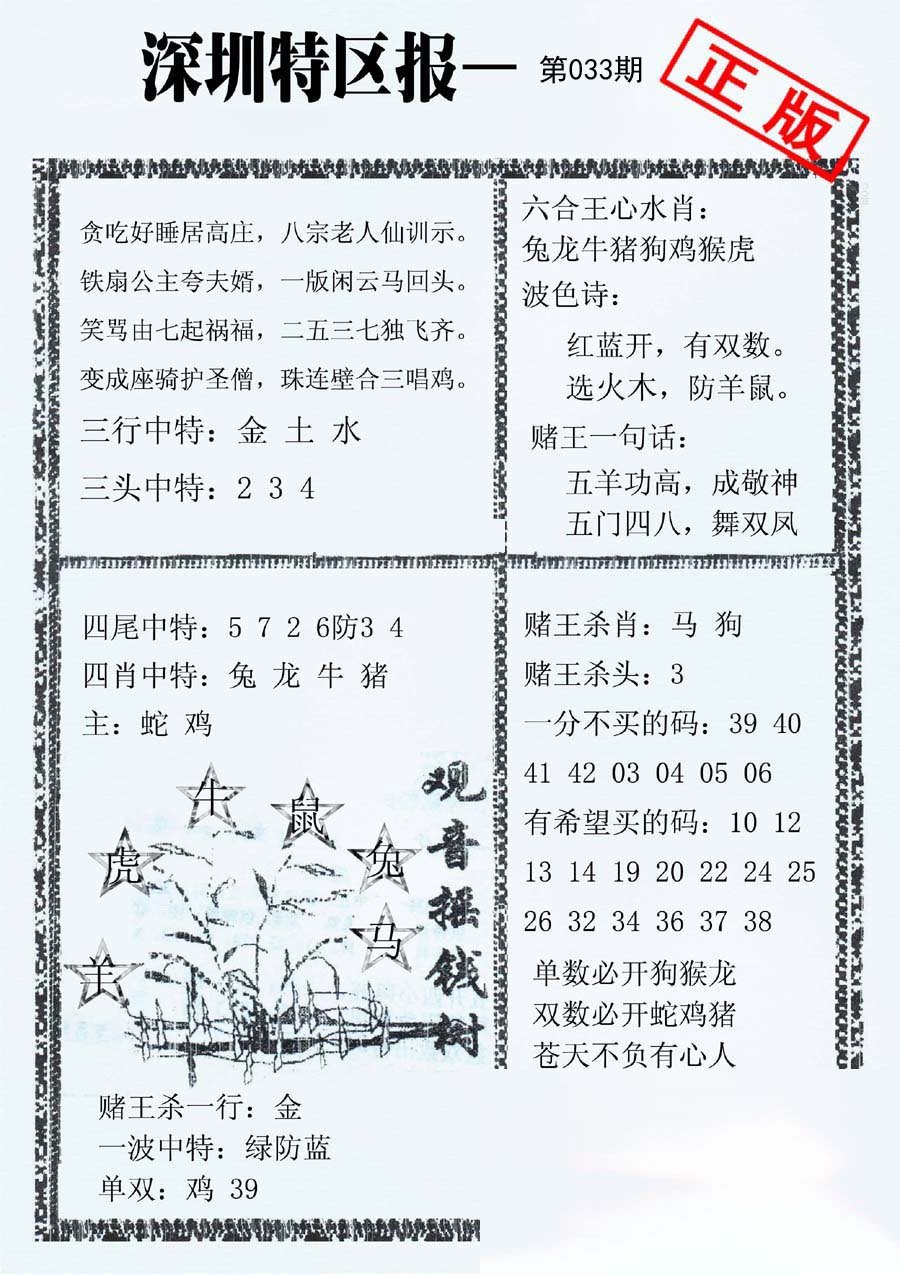 深圳特区报一 第033期
正版
贪吃好睡居高庄，八宗老人仙训示。
铁扇公主夸夫婿，一版闲云马回头。
笑骂由七起祸福，二五三七独飞齐。
变成座骑护圣僧，珠连壁合三唱鸡。
三行中特：金 土 水
三头中特：2 3 4
六合王心水肖：
兔龙牛猪狗鸡猴虎
波色诗：
红蓝开，有双数。
选火木，防羊鼠。
赌王一句话：
五羊功高，成敬神
五门四八，舞双凤
四尾中特：5 7 2 6防3 4
四肖中特：兔 龙 牛 猪
主：蛇 鸡
牛
鼠
虎
兔
马
羊
观音摇钱树
赌王杀一行：金
一波中特：绿防蓝
单双：鸡 39
赌王杀肖：马 狗
赌王杀头：3
一分不买的码：39 40
41 42 03 04 05 06
有希望买的码：10 12
13 14 19 20 22 24 25
26 32 34 36 37 38
单数必开狗猴龙
双数必开蛇鸡猪
苍天不负有心人